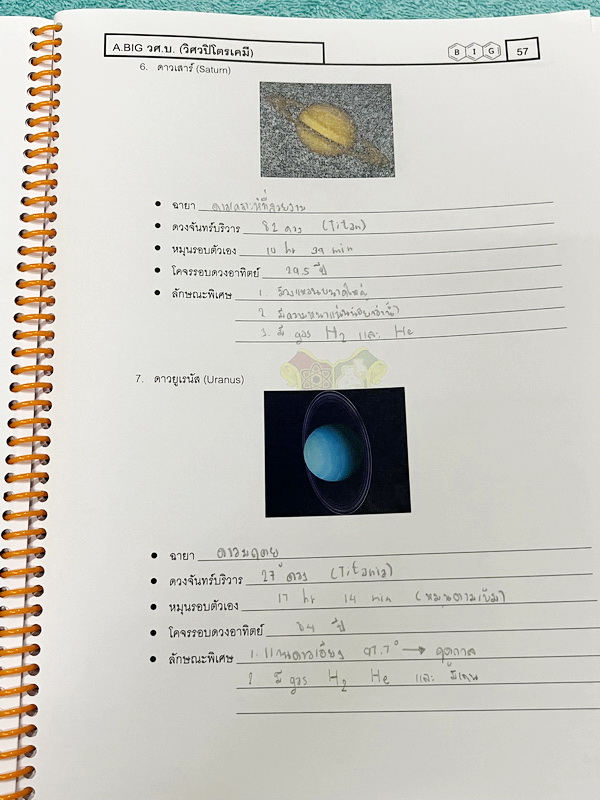 A.BIG วศ.บ. (วิศวปิโตรเคมี)
B I G
57
6. ดาวเสาร์ (Saturn)
• ฉายา ดาวเคราะห์ที่สวยงาม
• ดวงจันทร์บริวาร 82 ดวง (Titan)
• หมุนรอบตัวเอง 10 hr 39 min
• โคจรรอบดวงอาทิตย์ 29.5 ปี
• ลักษณะพิเศษ 1. มีวงแหวนขนาดใหญ่
2. มีความหนาแน่นน้อยกว่าน้ำ
3. มี gas H2 และ He
7. ดาวยูเรนัส (Uranus)
• ฉายา ดาวมฤตยู
• ดวงจันทร์บริวาร 27 ดวง (Titania)
• หมุนรอบตัวเอง 17 hr 14 min (หมุนตามเข็ม)
• โคจรรอบดวงอาทิตย์ 84 ปี
• ลักษณะพิเศษ 1. แกนดาวเอียง 97.7° → ฤดูกาล
2. มี gas H2 He และ มีเทน